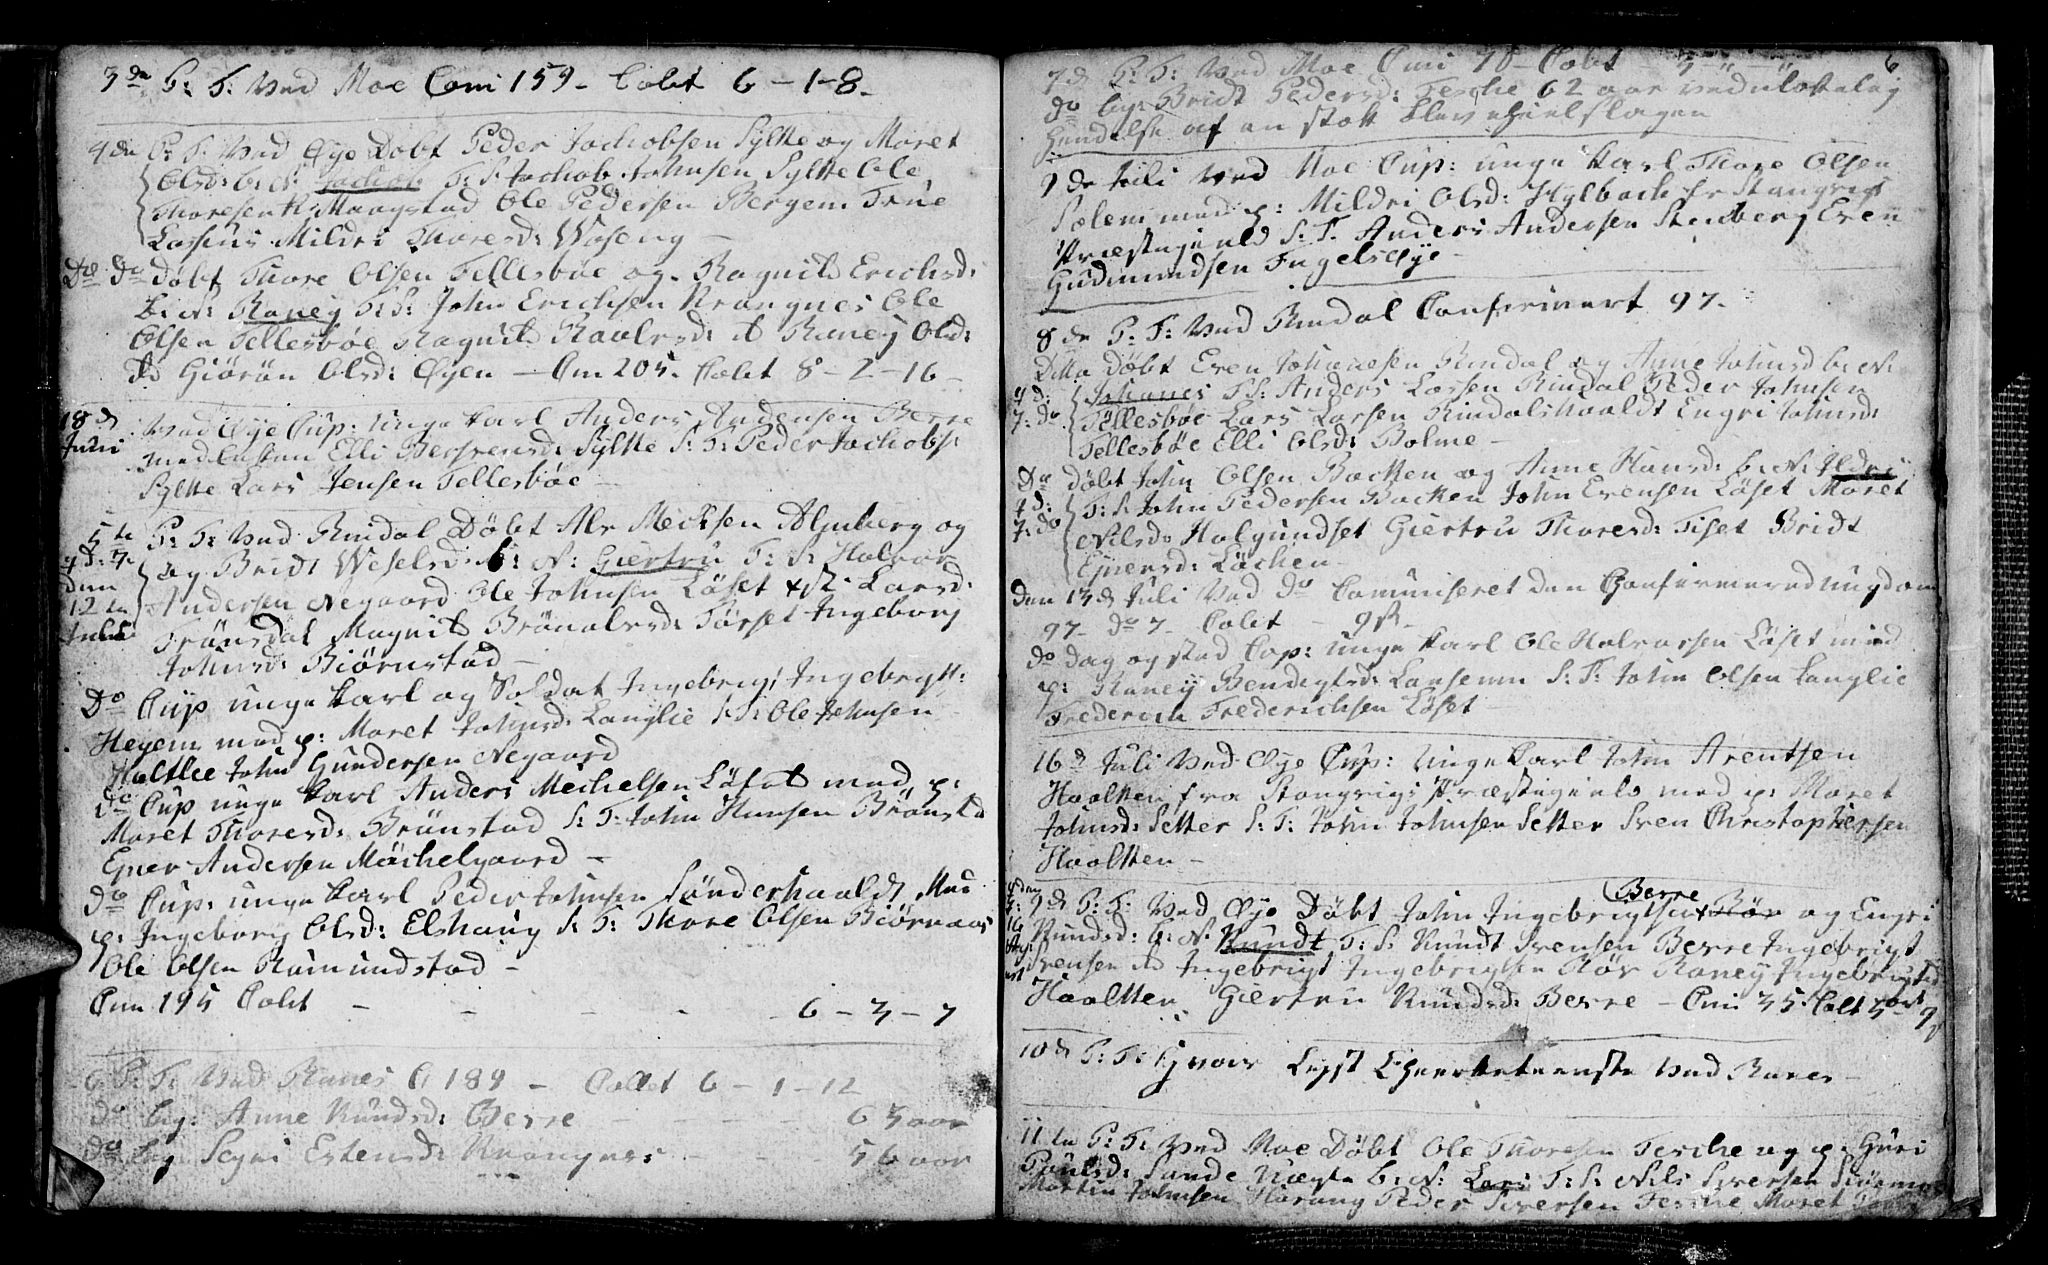 3de P: T: Ved Moe Comi 159 - Coled 6 - 1 - 8 -
4de P: T: Ved Øye Døbt Peder Jachobsen Sylte og Maret
Olsd: b: N: Jachob T: S: Jachob Johnsen Sylte Ole
Thoresen Maagstad Ole Pedersen Bergem Trine
Lassius Mildri Thoresd: Waseng -
Do Do Døbt Thore Olsen Tellesbøe og Ragnild Erichsd:
b: N: Raney T: S: John Erichsen Krangnes Ole
Olsen Tellesbøe Ragnild Raulsd: Raney Olsd:
Giørøn Olsd: Øyen - Om 205. Colet 8 - 2 - 16 -
18 d Juli
Ved Øye Cup: unge karl Anders Andersen Berre
med Enken Elli Bersvensd: Sylte S: T: Peder Jachobs:
Sylte Lars Jensen Tellesbøe -
5te P: T: Ved Rindal Døbt Alv Mecksen Alnberg og
Brid: Weselsd: b: N: Giertru T: S: Halvor
Andersen Negaard Ole Johnsen Løset Larsd:
12te Juli
Trønsdal Magnild Brønalvsd: Tørset Ingeborg
Johnsd: Biørnstad -
Do Cup unge karl og Soldat Ingebrigt Ingebrigt:
Heyem med p: Maret Johnsd: Langlie S: T: Ole Johnsen
Holtlee John Gundersen Negaard
do Cup unge karl Anders Mechelsen Løset med p:
Maret Thoresd: Brønstad S: T: John Hansen Brønstd
Ener Andersen Møchelgaard -
do Cup: unge karl Peder Johnsen Sønderhaaldt Med
p: Ingeborg Olsd: Elshaug S: T: Thore Olsen Biørnaas
Ole Olsen Romundstad -
Om 195 Colet - - - - - 6 - 3 - 7
6 P: T: Ved Ranes C 189 - Collet 6 - 1 - 12
do beg: Anne Knudsd: Berre - - - 63 aar
do beg Segri Estensd: Krangnes - - 56 aar
6
7d P: T: Ved Moe Omi 78 - Colet - 3 " - "
do beg: Bridt Pedersd: Tesche 62 aar ved uløkelig
hendelse af en stok blev ihielslagen
7de Juli Ved Moe Cup: unge karl Thore Olsen
Solem med p: Mildri Olsd: Hylbach fr Stangvigs
Præstegield S: T: Anders Andersen Stenberg Even
Gudmundsen Engelsøye -
8de P: T: Ved Rindal Confirmert 97.
Ditto Døbt Even Johanesen Rindal og Anne Johnsd b: N:
Johanes T: S: Anders Larsen Rindal Peder Johnsen
Tellesbøe Lars Larsen Rindalshaaldt Engri Johnsd:
Tellesbøe Elli Olsd: Bolme -
Do døbt John Olsen Backen og Anne Hansd: b: N: Ildri
T: S: John Pedersen Backen John Evensen Løset Maret
Nilsd: Halgundset Giertru Thoresd: Tiset Bridt
Enersd: Løchen -
Den 13d Juli Ved do Comuniseret den Confirmered ungdom
97 - do 7 - Colet - 9 ß -
do dag og stad Cop: unge karl Ole Halvorsen Løset med
p: Raney Bendigtsd: Lansemn S: T: John Olsen Langlie
Frederich Frederichsen Løset -
16d Juli Ved Øye Cup: unge karl John Arentsen
Haalten fra Stangvigs Præstegield med p: Maret
Johnsd: Setter S: T: John Johnsen Setter Sven Christophersen
Haalten -
9d P: T: Ved Øye Døbt John Ingebrigtsen Røv Berre og Engri
Knudsd: b: N: Knudt T: S: Knudt Svensen Berre Ingebrigt
Svensen Do Ingebrigt Ingebrigtsen Røv Raney Ingebrigtsd
Haalten Giertru Knudsd: Berre - Omi 35 Colt
10d P: T: Lyst Ved Ranes -
11te P: T: Ved Moe Døbt Ole Thoresen Tesche og p: Guri
Poulsd: Sunde b: N: Lars T: S: Nils Siversen
Martin Johnsen Harang Peder Siversen Tesche Maret